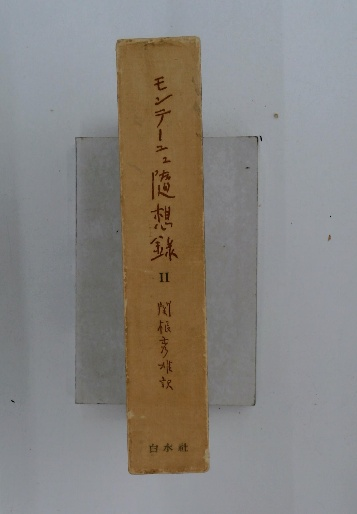 モンテーニュ随想録
II
関根秀雄訳
白水社